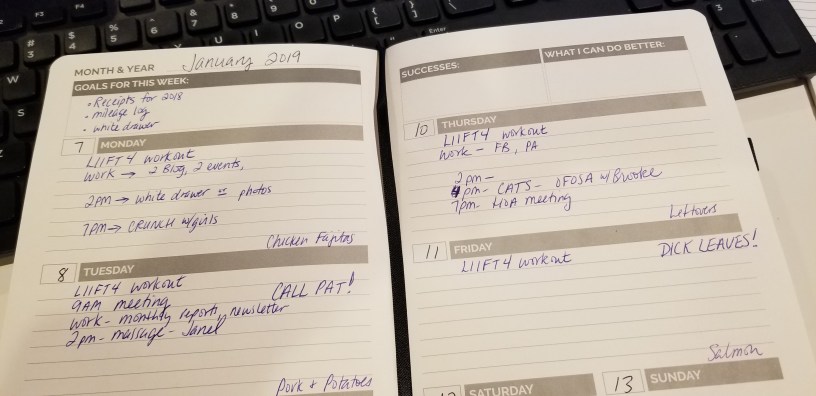 MONTH & YEAR January 2019
GOALS FOR THIS WEEK:
• Receipts for 2018
• mileage log
• white drawer
7 MONDAY
LIIFT4 workout
Work → 2 Blog, 2 events,
2pm → white drawer photos
7pm → CRUNCH w/girls
Chicken Fajitas
8 TUESDAY
LIIFT4 workout
9AM meeting CALL PAT!
Work - monthly report, newsletter
2pm - massage - Janel
Pork + Potatoes
SUCCESSES:
WHAT I CAN DO BETTER:
10 THURSDAY
LIIFT4 workout
Work - FB, PA
2pm -
4pm - CATS - OFOSA w/Brooke
7pm - HOA meeting
Leftovers
11 FRIDAY
LIIFT4 workout DICK LEAVES!
Salmon
SATURDAY
13 SUNDAY
F3
F4
F12
Enter
#
3
$
4
%
5
&
7
8
9
W
E
R
T
Y
U
I
O
P
S